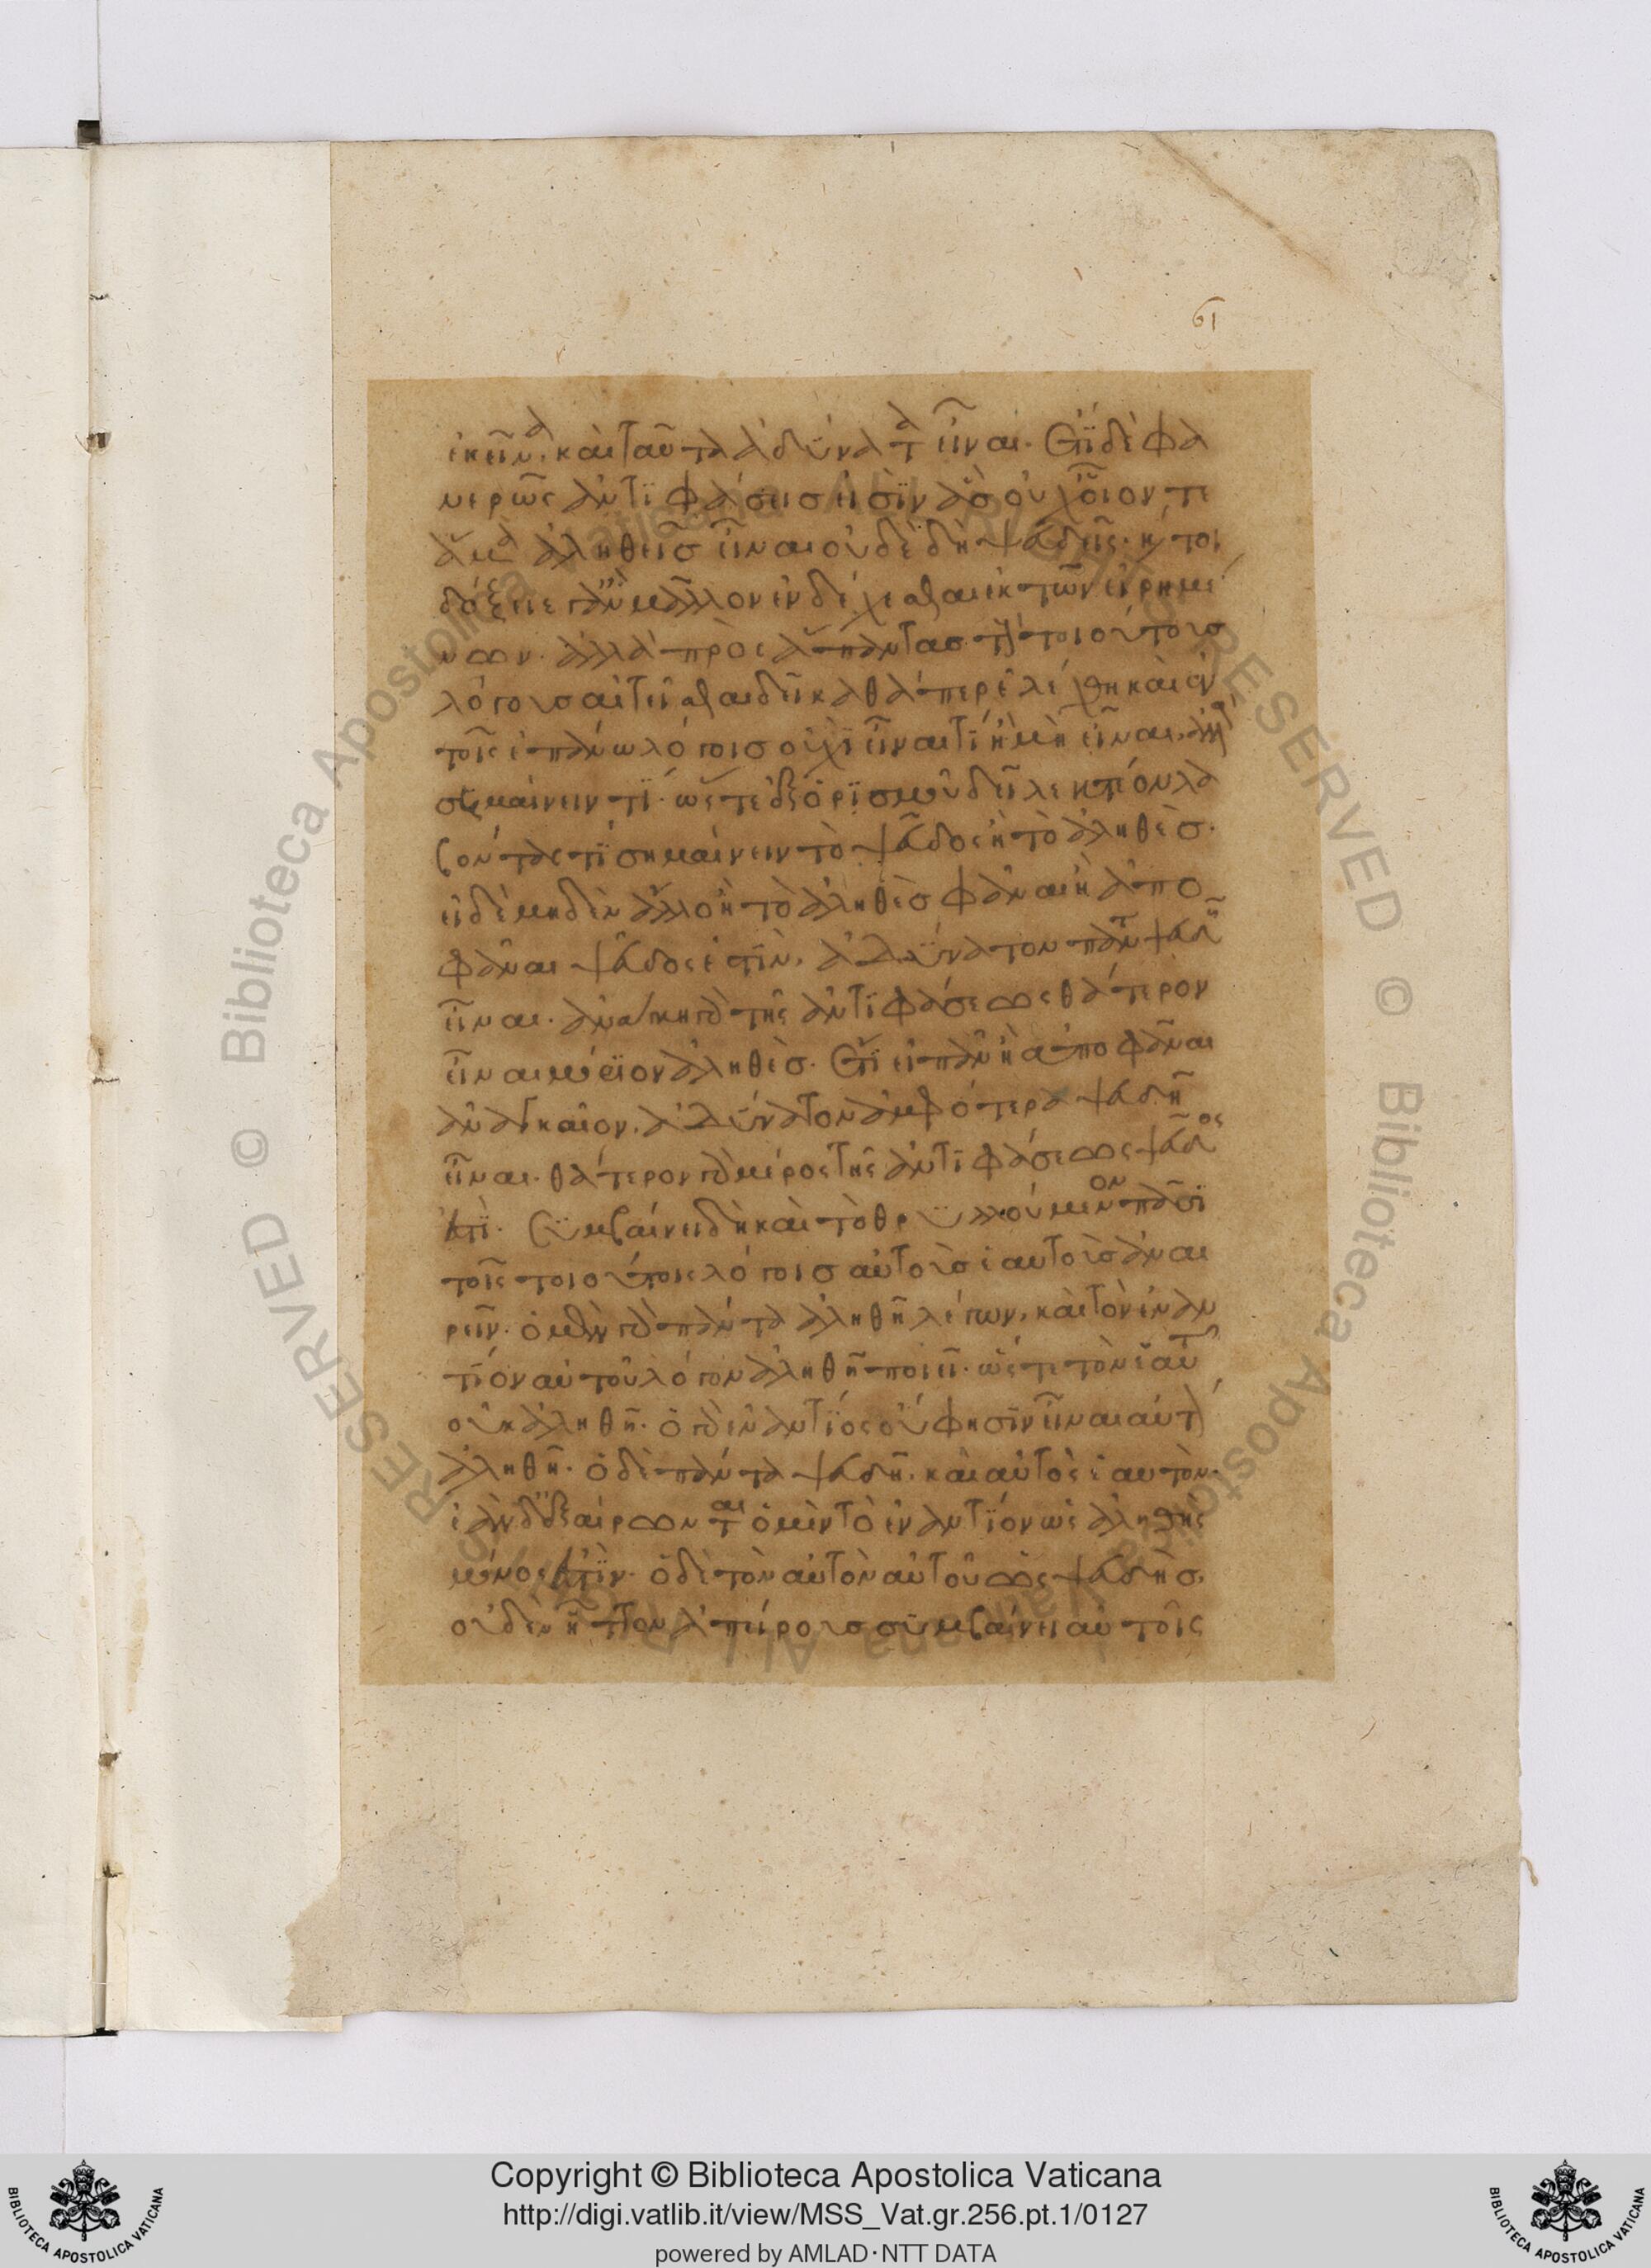 ἐκεῖνα, καὶ ταῦτα ἀδύνατα εἶναι. Ἔτι δὲ φα
νερῶς ἀντιφάσεισ εἰσὶν ἃσ οὐχ οἷον τε
ἅμα ἀληθεισ εἶναι οὐδὲ δὴ ψευδεῖς. ἤτοι
δόξειε γ' ἂν μᾶλλον ἐνδέχεσθαι ἐκ τῶν εἰρημέ
νων. ἀλλὰ πρὸς ἅπαντασ τοὺς τοιούτουσ
λόγουσ αἰτεῖσθαι δεῖ καθάπερ ἐλέχθη καὶ ἐν
τοῖς ἐπάνω λόγοισ οὐχὶ εἶναι τί ἢ μὴ εἶναι, ἀλλὰ
σημαίνειν τί. ὥςτε ἐξ ὁρισμοῦ δεῖ λεκτέον λα
βόντας τί σημαίνειν τὸ ψεῦδος ἢ τὸ ἀληθὲσ.
εἰ δὲ μηδὲν ἄλλο ἢ τὸ ἀληθὲσ φάναι ἢ ἀπο
φάναι ψεῦδος ἐστὶν, ἀδύνατον πάντα ψευδῆ
εἶναι. ἀνάγκη γὰρ τῆς ἀντιφάσεως θάτερον
εἶναι μόριον ἀληθὲσ. Ἔτι εἰ πᾶν ἢ ἀποφάναι
ἀναγκαῖον, ἀδύνατον ἀμφότερα ψευδῆ
εἶναι. θάτερον γὰρ μέρος τῆς ἀντιφάσεως ψεῦδος
ἐστὶ. Συμβαίνει δὴ καὶ τὸ θρυλλούμενον πᾶσι
τοῖς τοιούτοις λόγοισ αὐτοὺσ ἑαυτοὺσ ἀναι
ρεῖν. ὁ μὲν γὰρ πάντα ἀληθῆ λέγων, καὶ τὸν ἐναν
τίον αὐτοῦ λόγον ἀληθῆ ποιεῖ. ὥςτε τὸν ἑαυτοῦ
οὐκ ἀληθῆ. ὁ γὰρ ἐναντίος οὔ φησὶν εἶναι αὐτὸν
ἀληθῆ. ὁ δὲ πάντα ψευδῆ, καὶ αὐτὸς ἑαυτὸν.
ἐὰν δ' ἐξαιρῶνται ὁ μὲν τὸ ἐναντίον ὡς ἀληθὴς
μόνος ἐστὶν. ὁ δὲ τὸν αὐτὸν αὐτοῦ ὡς ψευδὴσ,
οὐδὲν ἧττον ἀπείρουσ συμβαίνει αὐτοῖς
61
Copyright © Biblioteca Apostolica Vaticana
http://digi.vatlib.it/view/MSS_Vat.gr.256.pt.1/0127
powered by AMLAD·NTT DATA
BIBLIOTECA APOSTOLICA VATICANA
BIBLIOTECA APOSTOLICA VATICANA